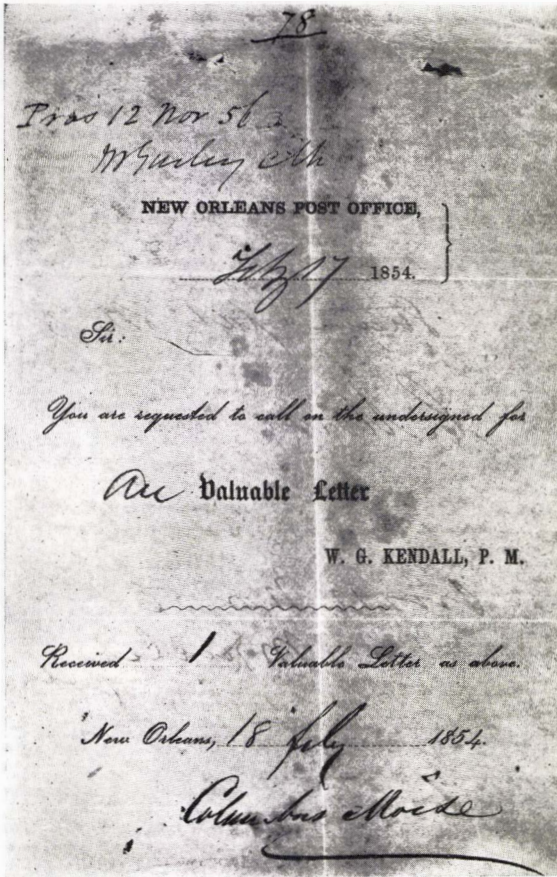 78
12 Nov 56
NEW ORLEANS POST OFFICE,
17 1854.
Sir:
You are requested to call on the undersigned for
Valuable Letter
W. G. KENDALL, P. M.
Received 1 Valuable Letter as above.
New Orleans, 18 July 1854.
Columbus Moise